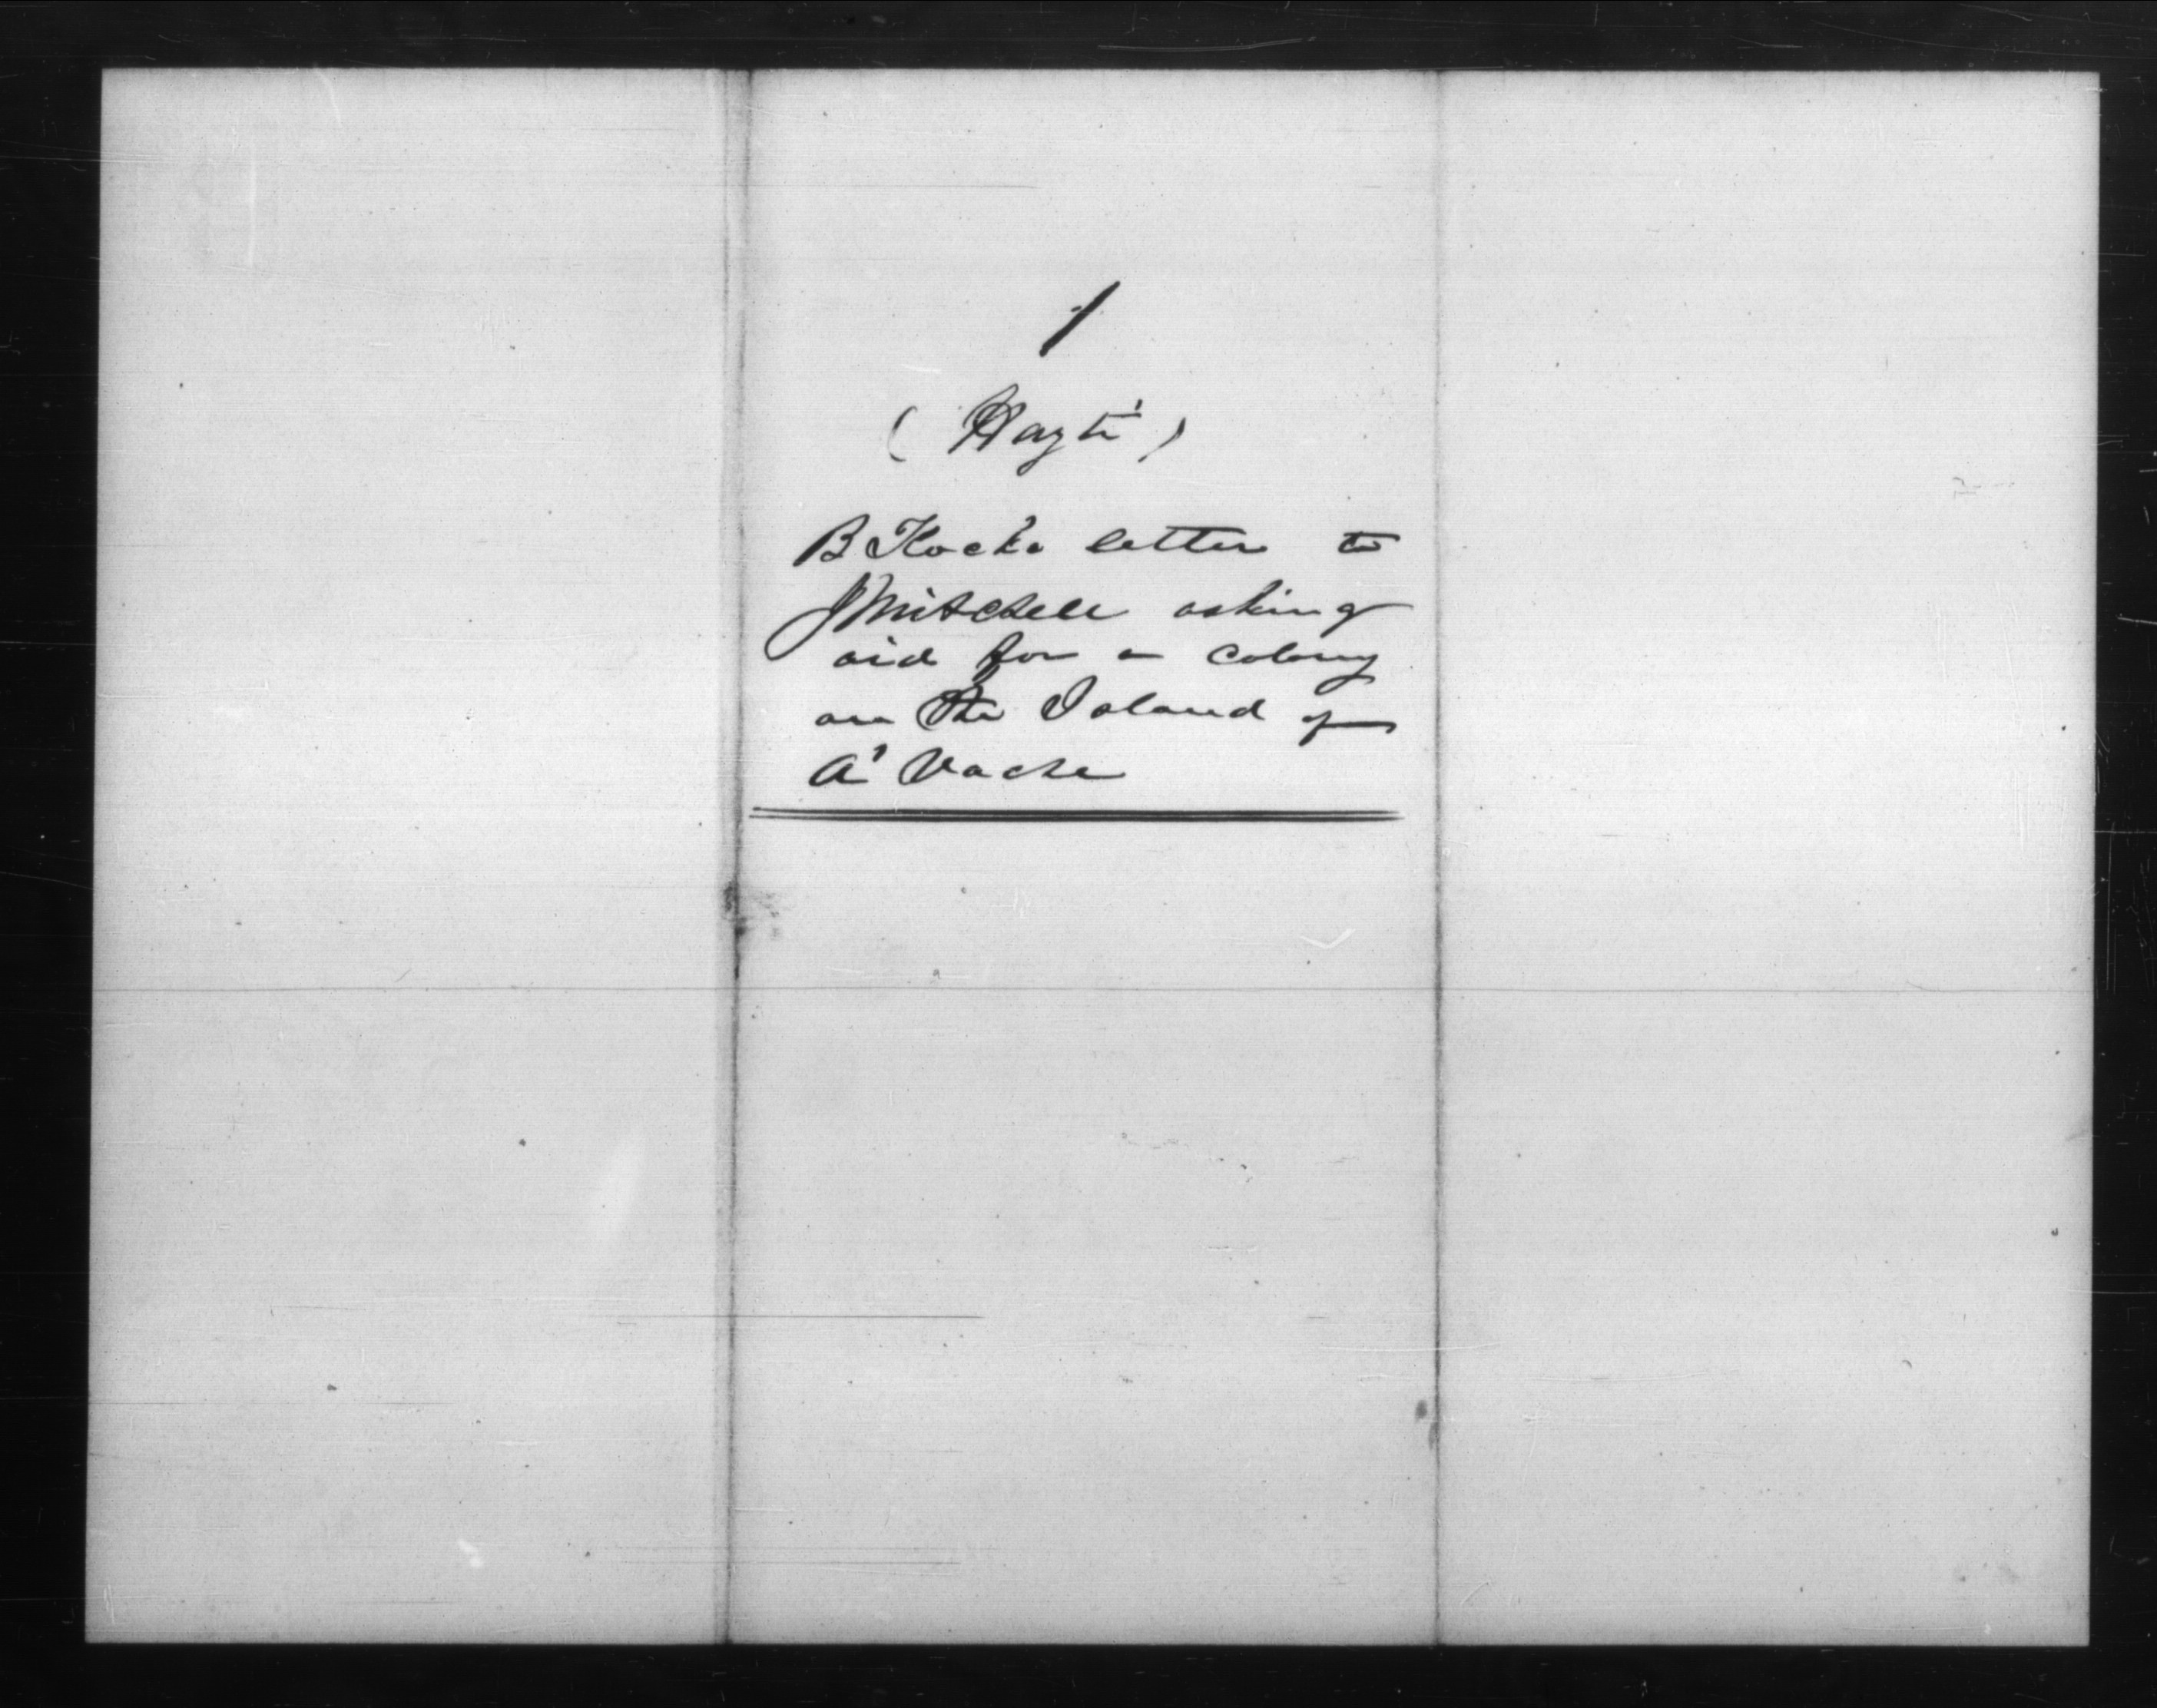 1
(Hayti)
B Kock's letter to
J Mitchell asking
aid for a colony
on the Island of
A' Vache